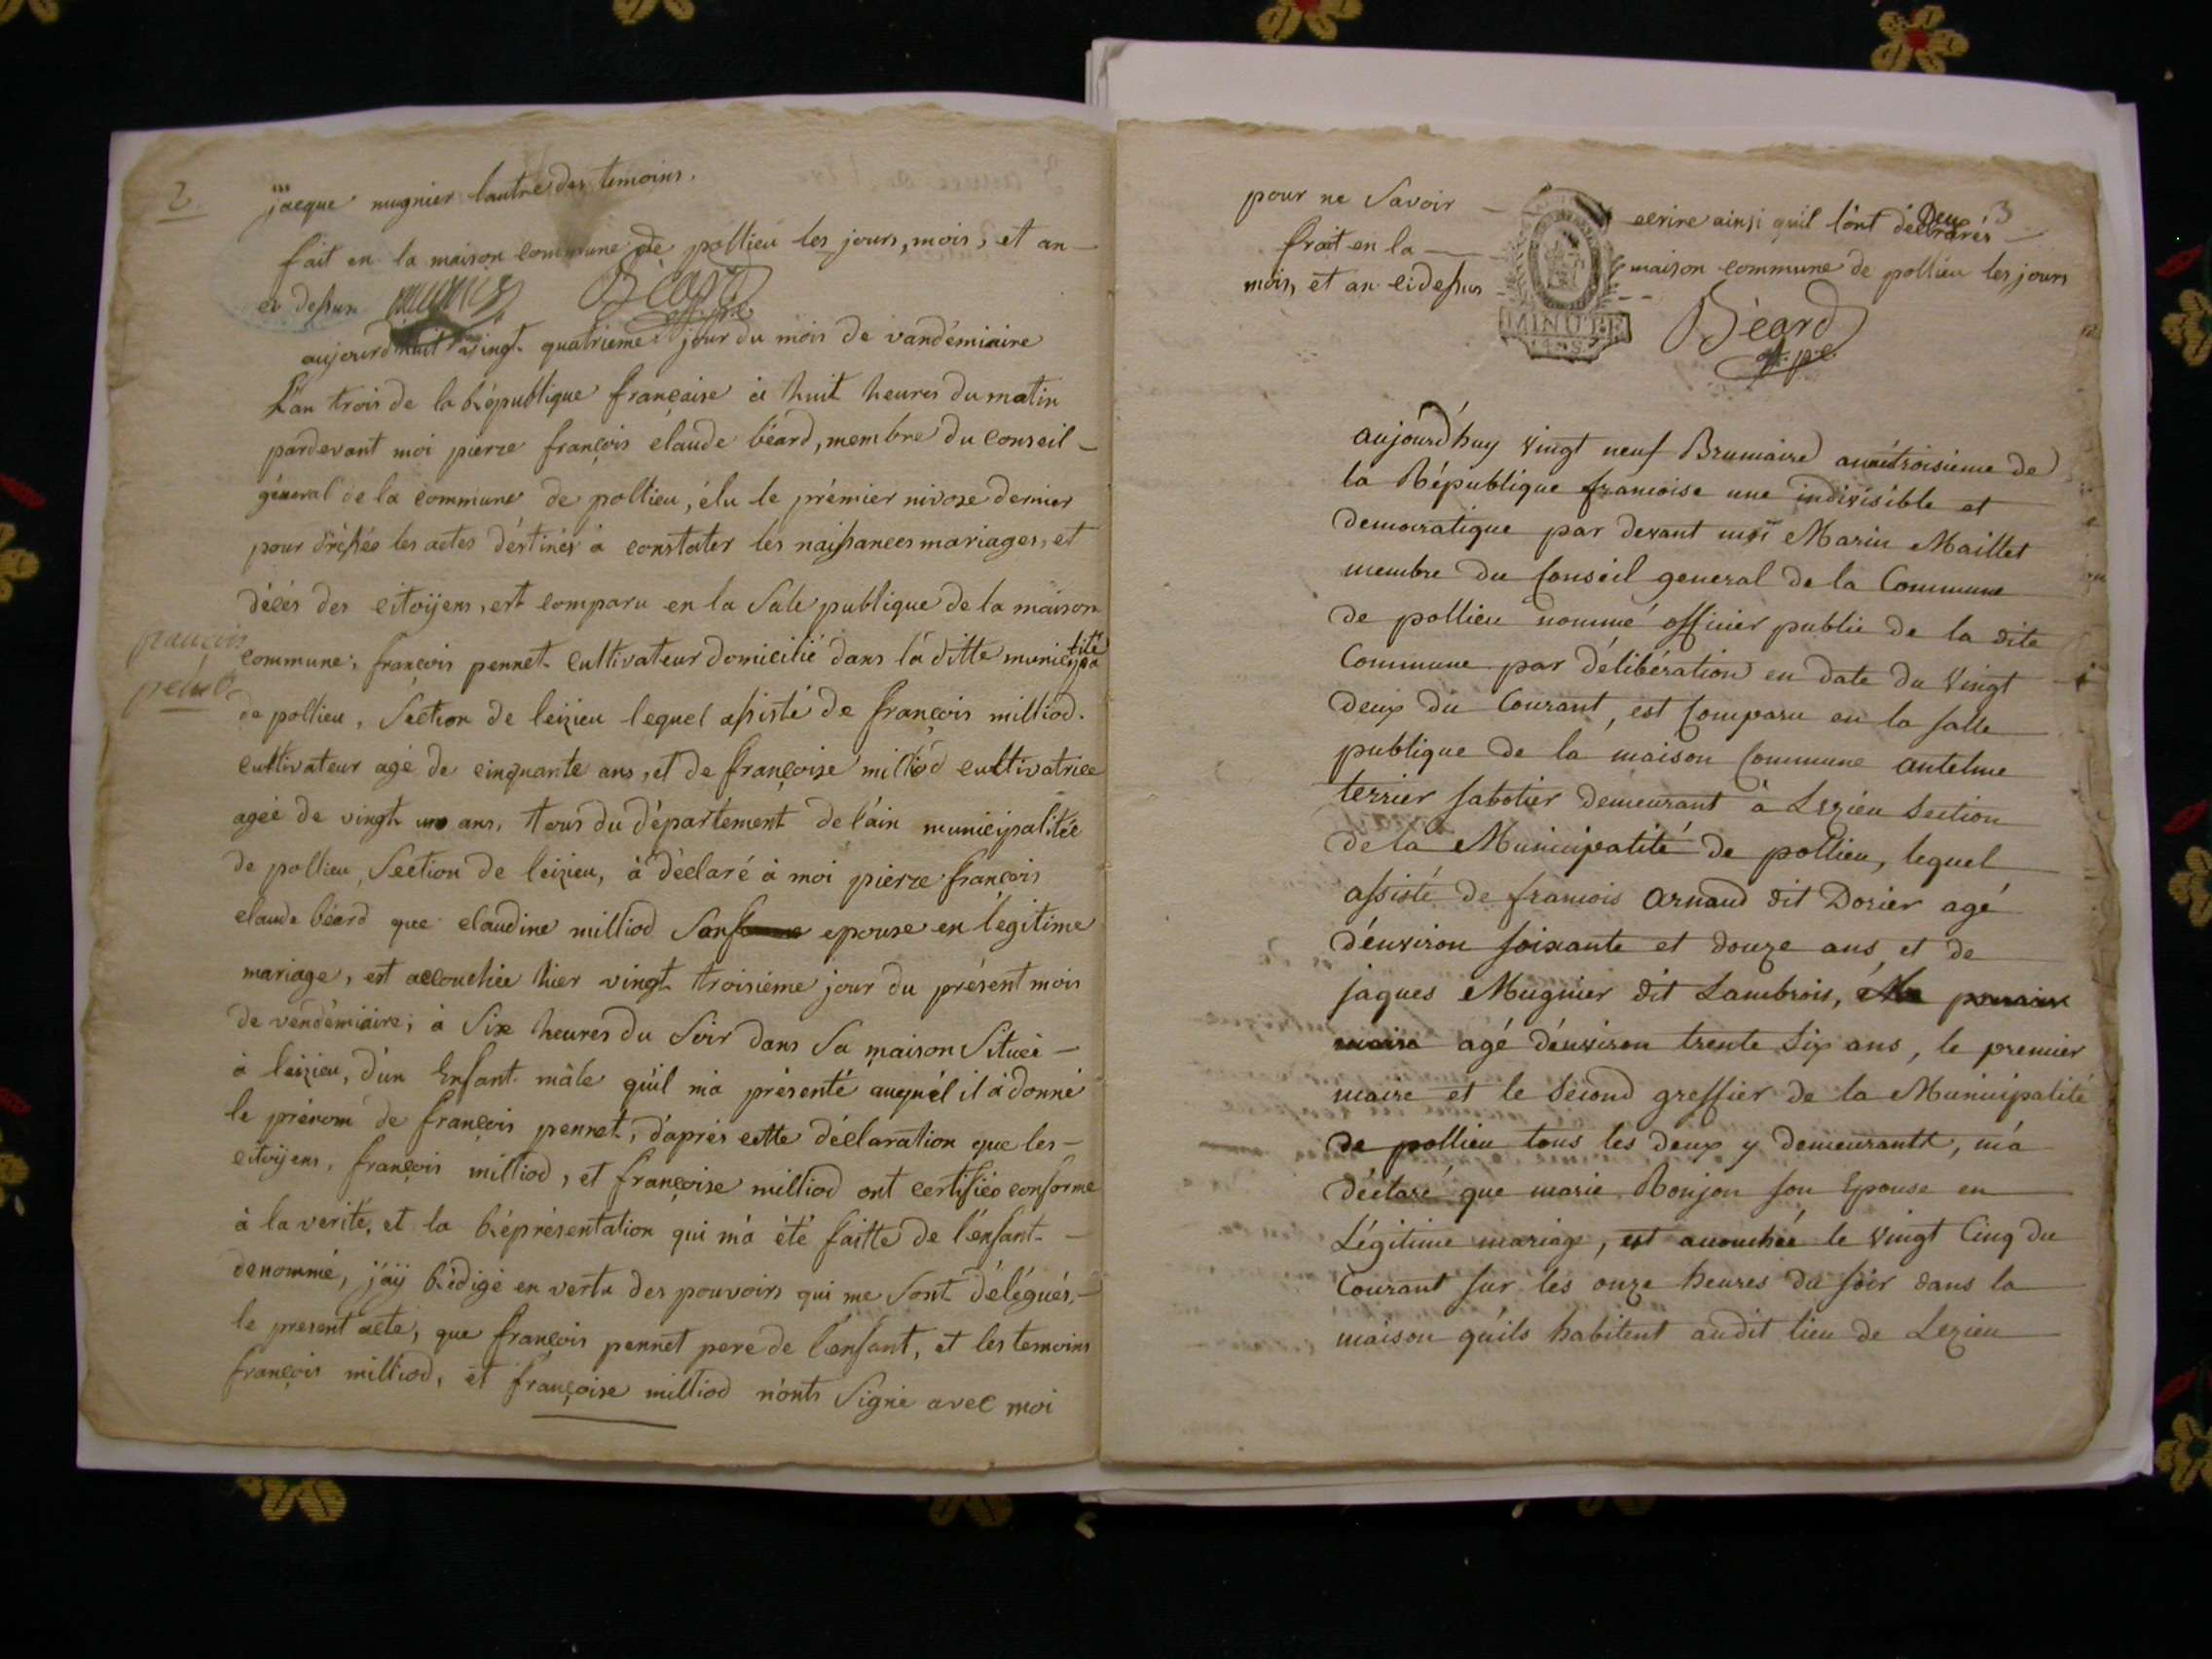 2
jacque mugnier lautre des temoins.
fait en la maison commune de pollieu les jours, mois, et an
ci dessus Béard
off. pc.
aujourd'huit vingt quatrieme jour du mois de vandémiaire
L'an trois de la République française à huit heures du matin
pardevant moi pierre françois claude béard, membre du conseil
général de la commune de pollieu, élu le prémier nivose dernier
pour drèssée les actes déstinés à constater les naissances mariages, et
décés des citoÿens, est comparu en la Sale publique de la maison
commune, françois pennet cultivateur domicilié dans la ditte municipalité
françois
penet
de pollieu, Section de leizieu lequel assisté de françois milliod
cultivateur agé de cinquante ans, et de françoise milliod cultivatrice
agée de vingt un ans, tous du département de l'ain municipalitée
de pollieu, Section de leizieu, à déclaré à moi pierre françois
claude béard que claudine milliod Son epouse en légitime
mariage, est accouchée hier vingt troisiéme jour du présent mois
de vendémiaire, à Six heures du Soir dans Sa maison Situeé
à leizieu, d'un Enfant mâle qu'il m'a présenté auquél il à donné
le prénom de françois pennet, d'aprés cette déclaration que les
citoÿens, françois milliod, et françoise milliod ont certifiéo conforme
à la verité, et la Réprésentation qui m'a été faitte de l'enfant
denommé, j'aÿ Rédigé en vertu des pouvoirs qui me Sont délégués,
le present acte, que françois pennet pere de l'enfant, et les temoins
françois milliod, et françoise milliod n'onts Signé avec moi
3
pour ne Savoir ecrire ainsi quil l'ont déclarés
Deux
frait en la maison commune de pollieu les jours
mois, et an cidessus
MINUTE
Béard
off. pc.
aujourd'huy vingt neuf Brumaire année troisieme de
la République francoise une indivisible et
democratique par devant moi Marin Maillet
membre du Conseil general de la Commune
de pollieu nommé officier public de la dite
Commune par délibération en date du vingt
deux du Courant, est Comparu en la salle
publique de la maison Commune antelme
terrier sabotier demeurant à Lezieu Section
de la Municipalité de pollieu, lequel
assisté de francois arnaud dit Dorier agé
d'environ soixante et douze ans, et de
jaques Mugnier dit Lambrois,
agé d'environ trente Six ans, le premier
maire et le Second greffier de la Municipalité
de pollieu tous les deux y demeurantt, m'a
déclaré que marie Bonjon son Epouse en
Légitime mariage, est accouchée le vingt Cinq du
Courant sur les onze heures du soir dans la
maison qu'ils habitent audit lieu de Lezieu